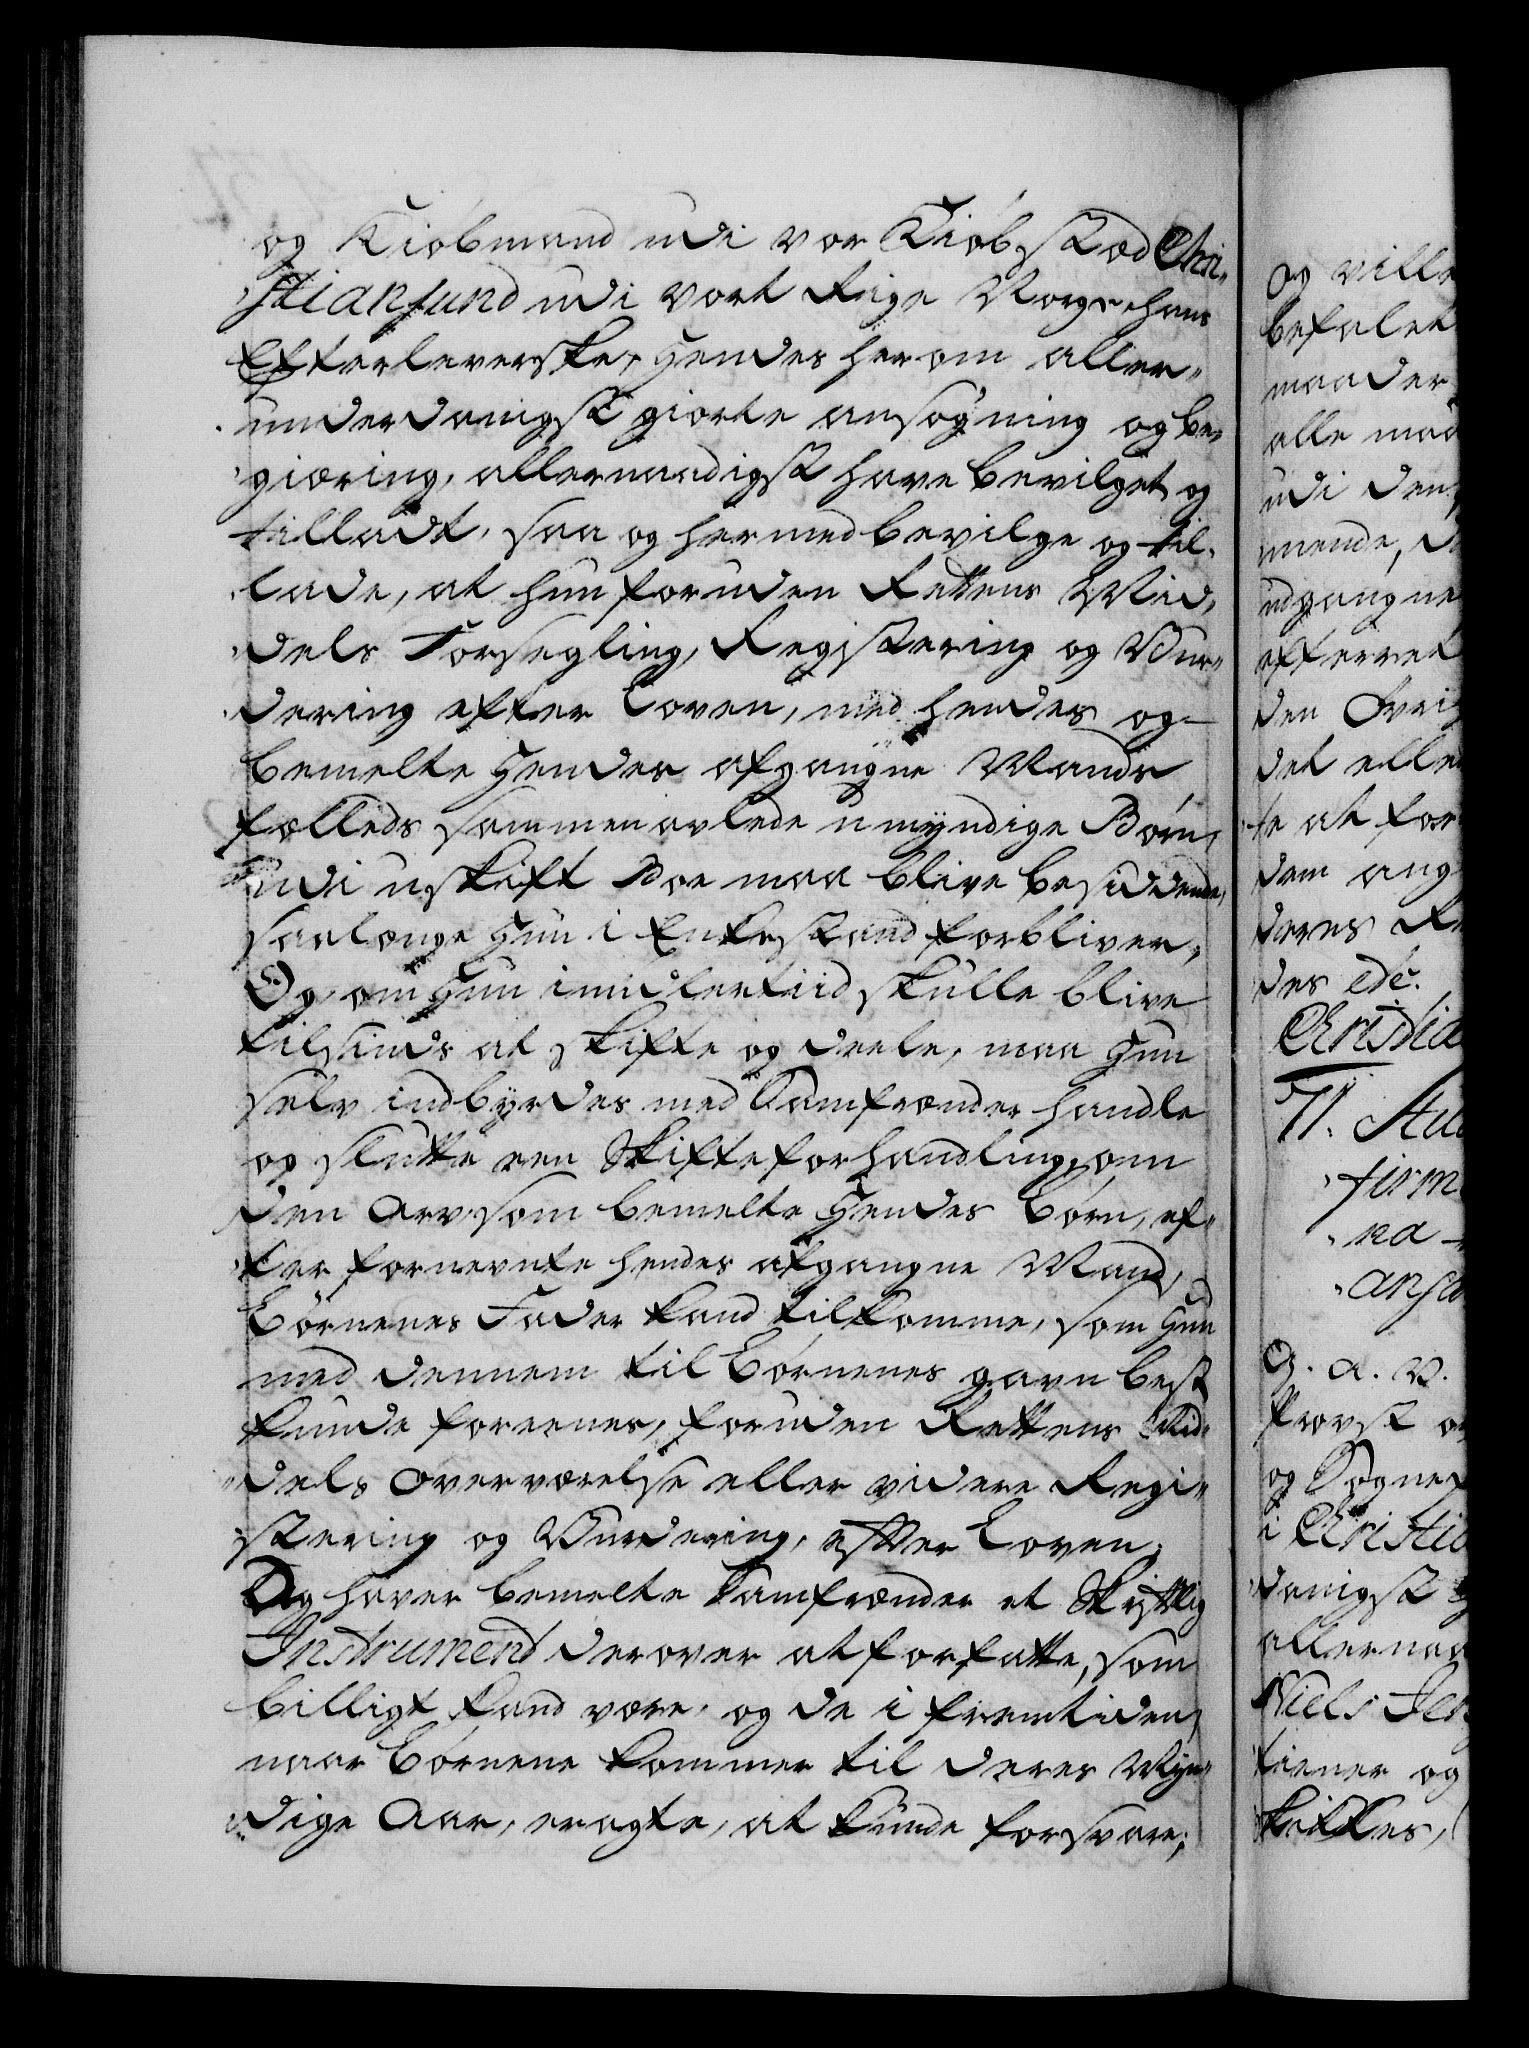 og Kiöbmand udi vor Kiöbstæd Chri-
stiansund udi vort Rige Norge hans
Efterleverske, Hendes herom aller-
underdanigst giorte ansøgning og be-
giæring, allernaadigst have bevilget og
tilladt, saa og hermed bevilge og til-
lade, at hun foruden Rettens Mid-
dels Forsegling, Registering og Vur-
dering efter Loven, med hendes og
bemelte Hendes afgangne Mands
fælleds sammenavlede umÿndige Börn,
udi uskift Boe maa blive besiddende,
saalænge Hun i Enkestand forbliver,
Og, om Hun imidlertiid skulle blive
tilsinds at skifte og deele, maa Hun
selv indbÿrdes med Samfrænder handle
og slutte een Skifteforhandling, om
den Arv, som bemelte Hendes Börn, ef-
ter fornevnte hendes afgangne Mand,
Börnenes Fader kand tilkomme, som Hun
med dennem til Börnenes gavn best
kunde foreenes, foruden Rettens Mid-
dels overværelse eller videre Regi-
stering og Vurdering, efter Loven;
Og haver bemelte Samfrænder et Skriftlig
Instrument derover at forfatte, som
billigt kand være, og de i fremtiden,
naar Börnene kommer til deres Myn-
dige Aar, eragte, at kunde forsvare;
og ville
befalet
maader
alle maa
udi den
mende, d
udgangne
efterret
den Övrig
det elle
te at for
dem ang
deres R
des etc.
Christia
71. Stu
firm
na
ansø
G. A. V.
Provst o
og Sognep
i Christia
danigst
allernaa
Niels Jen
tiener og
skikkes,